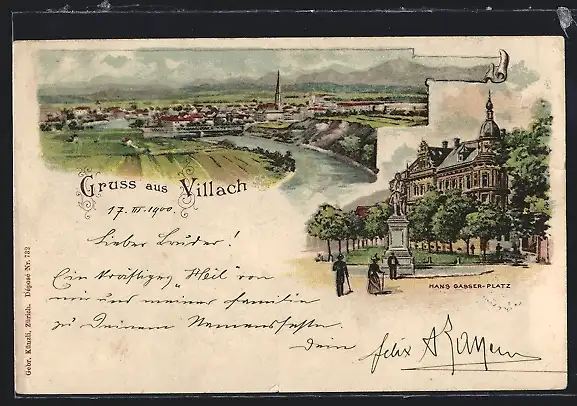 Gruss aus Villach
HANS GASSER-PLATZ
17. III. 1900.
Lieber Bruder!
Ein kräftiges „Heil" von
mir und meiner Familie
zu Deinem Namensfeste.
Dein
felix
Gebr. Künzli, Zürich. Déposé Nr. 732